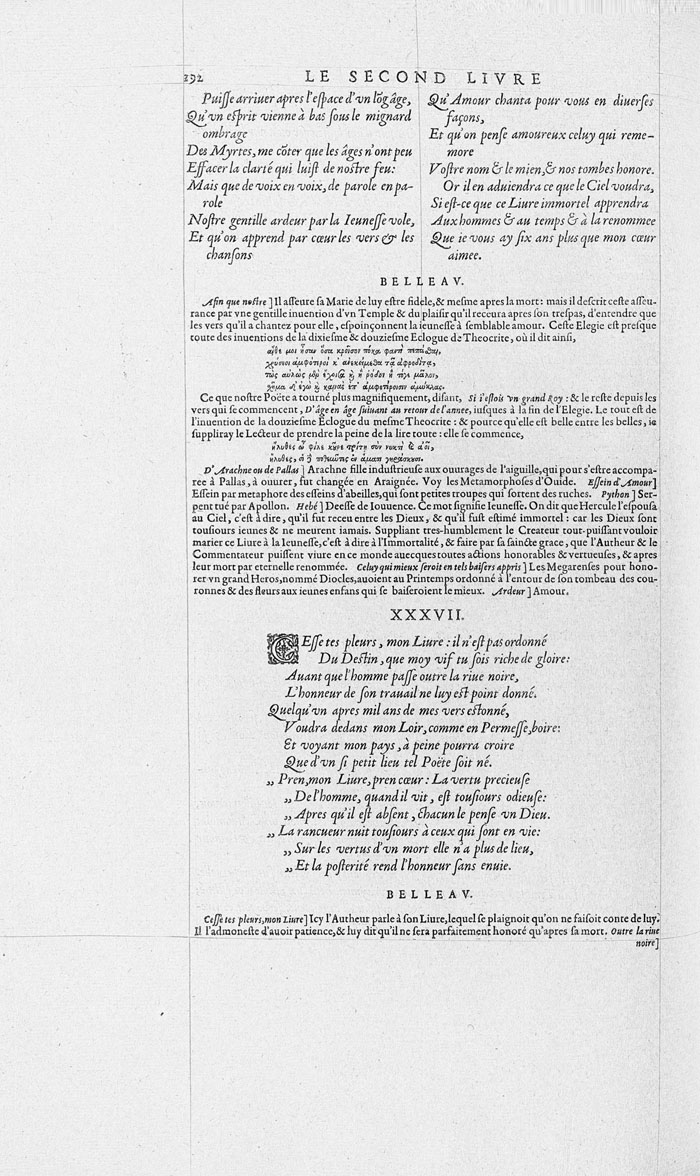 292 LE SECOND LIVRE
Puisse arriuer apres l'espace d'vn lõg âge,
Qu'vn esprit vienne à bas sous le mignard
ombrage
Des Myrtes, me cõter que les âges n'ont peu
Effacer la clarté qui luist de nostre feu:
Mais que de voix en voix, de parole en pa-
role
Nostre gentille ardeur par la Ieunesse vole,
Et qu'on apprend par cœur les vers & les
chansons
Qu'Amour chanta pour vous en diuerses
façons,
Et qu'on pense amoureux celuy qui reme-
more
Vostre nom & le mien, & nos tombes honore.
Or il en aduiendra ce que le Ciel voudra,
Si est-ce que ce Liure immortel apprendra
Aux hommes & au temps & à la renommee
Que ie vous ay six ans plus que mon cœur
aimee.
BELLEAV.
Afin que nostre ] Il asseure sa Marie de luy estre fidele, & mesme apres la mort: mais il descrit ceste asseu-
rance par vne gentille inuention d'vn Temple & du plaisir qu'il receura apres son trespas, d'entendre que
les vers qu'il a chantez pour elle, espoinçonnent la ieunesse à semblable amour. Ceste Elegie est presque
toute des inuentions de la dixiesme & douziesme Eclogue de Theocrite, où il dit ainsi,
Ce que nostre Poëte a tourné plus magnifiquement, disant, Si i'estois vn grand Roy : & le reste depuis les
vers qui se commencent, D'âge en âge suiuant au retour de l'annee, iusques à la fin de l'Elegie. Le tout est de
l'inuention de la douziesme Eclogue du mesme Theocrite : & pource qu'elle est belle entre les belles, ie
suppliray le Lecteur de prendre la peine de la lire toute : elle se commence,
D'Arachne ou de Pallas ] Arachne fille industrieuse aux ouurages de l'aiguille, qui pour s'estre accompa-
ree à Pallas, à ouurer, fut changée en Araignée. Voy les Metamorphoses d'Ouide. Essein d'Amour]
Essein par metaphore des esseins d'abeilles, qui sont petites troupes qui sortent des ruches. Python ] Ser-
pent tué par Apollon. Hebé ] Deesse de Iouuence. Ce mot signifie Ieunesse. On dit que Hercule l'espousa
au Ciel, c'est à dire, qu'il fut receu entre les Dieux, & qu'il fust estimé immortel : car les Dieux sont
tousiours ieunes & ne meurent iamais. Suppliant tres-humblement le Createur tout-puissant vouloir
marier ce Liure à la Ieunesse, c'est à dire à l'Immortalité, & faire par sa saincte grace, que l'Autheur & le
Commentateur puissent viure en ce monde auecques toutes actions honorables & vertueuses, & apres
leur mort par eternelle renommée. Celuy qui mieux seroit en tels baisers appris ] Les Megarenses pour hono-
rer vn grand Heros, nommé Diocles, auoient au Printemps ordonné à l'entour de son tombeau des cou-
ronnes & des fleurs aux ieunes enfans qui se baiseroient le mieux. Ardeur ] Amour.
XXXVII.
CEsse tes pleurs, mon Liure : il n'est pas ordonné
Du Destin, que moy vif tu sois riche de gloire:
Auant que l'homme passe outre la riue noire,
L'honneur de son trauail ne luy est point donné.
Quelqu'vn apres mil ans de mes vers estonné,
Voudra dedans mon Loir, comme en Permesse, boire:
Et voyant mon pays, à peine pourra croire
Que d'vn si petit lieu tel Poëte soit né.
„ Pren, mon Liure, pren cœur : La vertu precieuse
„ De l'homme, quand il vit, est tousiours odieuse:
„ Apres qu'il est absent, chacun le pense vn Dieu.
„ La rancueur nuit tousiours à ceux qui sont en vie:
„ Sur les vertus d'vn mort elle n'a plus de lieu,
„ Et la posterité rend l'honneur sans enuie.
BELLEAV.
Cesse tes pleurs, mon Liure] Icy l'Autheur parle à son Liure, lequel se plaignoit qu'on ne faisoit conte de luy.
Il l'admoneste d'auoir patience, & luy dit qu'il ne sera parfaitement honoré qu'apres sa mort. Outre la riue
noire]